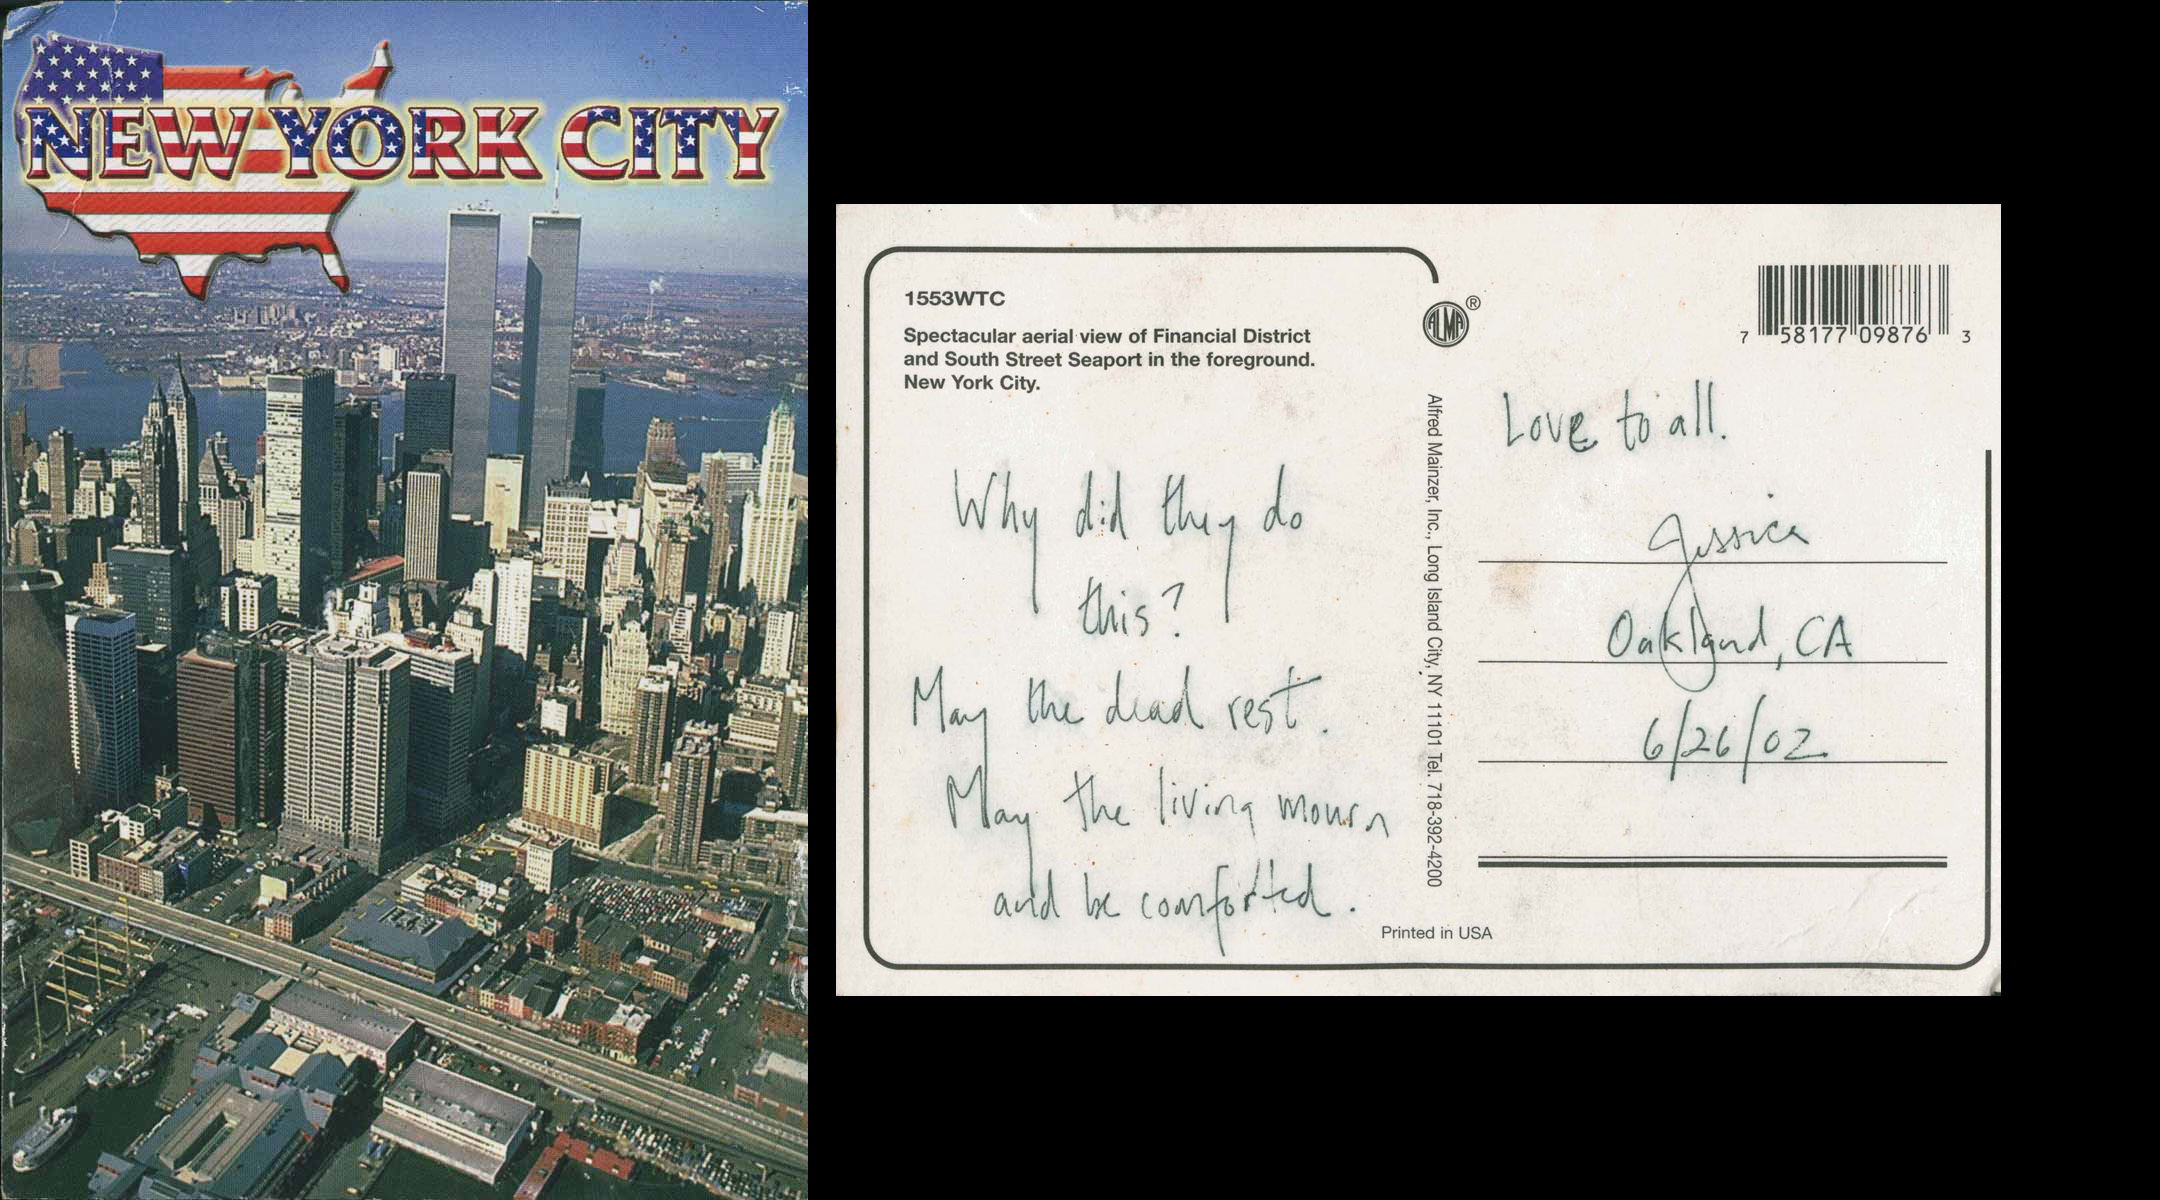 NEW YORK CITY
1553WTC
Spectacular aerial view of Financial District
and South Street Seaport in the foreground.
New York City.
Why did they do
this?
May the dead rest.
May the living mourn
and be comforted.
ALMA ®
Alfred Mainzer, Inc., Long Island City, NY 11101 Tel. 718-392-4200
Printed in USA
7 58177 09876 3
Love to all.
Jessica
Oakland, CA
6/26/02